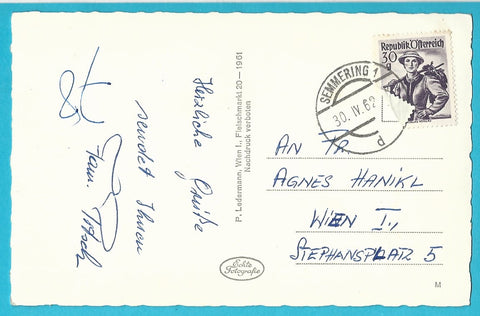 Herzliche Grüße
sendet Ihnen
Fam.
P. Ledermann, Wien I., Fleischmarkt 20 – 1961
Nachdruck verboten
Echte
Fotografie
SEMMERING 1
30. IV. 62
d
Republik Österreich
30
g
AN FR.
AGNES HANIKL
WIEN I.,
STEPHANSPLATZ 5
M